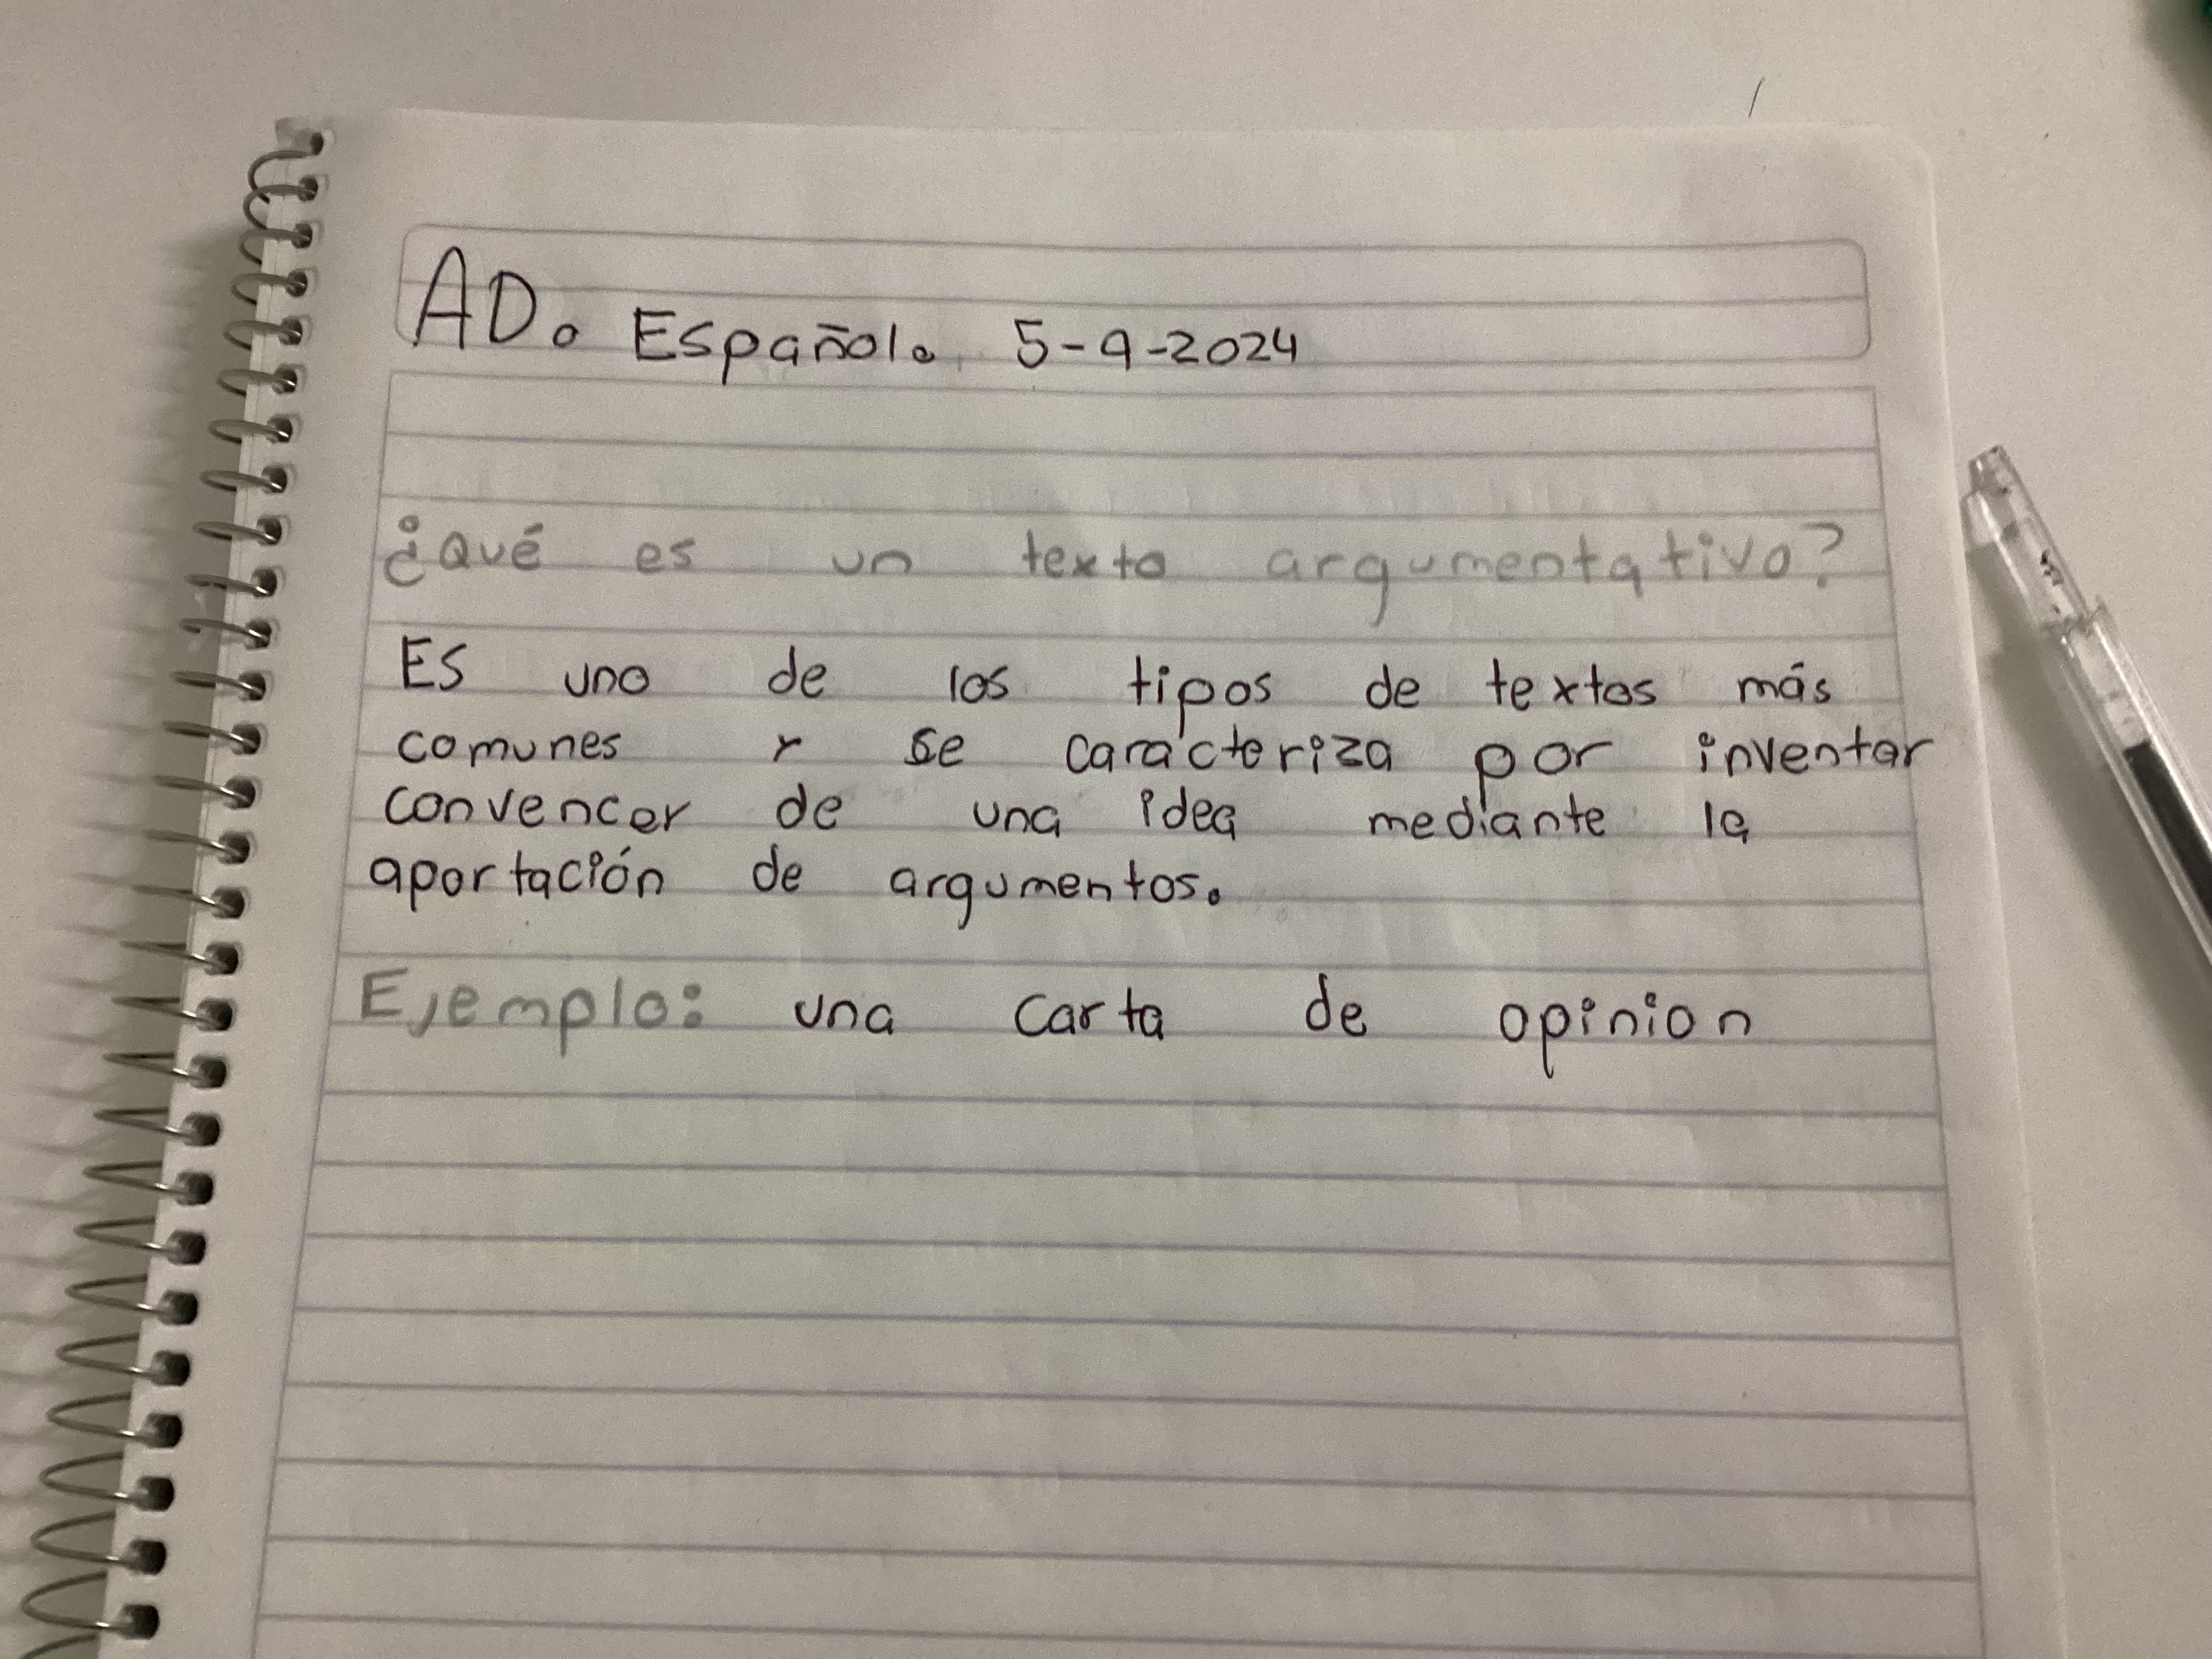 AD. Español. 5-9-2024
¿Qué es un texto argumentativo?
Es uno de los tipos de textos más
comunes y se caracteriza por inventar
convencer de una idea mediante la
aportación de argumentos.
Ejemplo: una carta de opinion